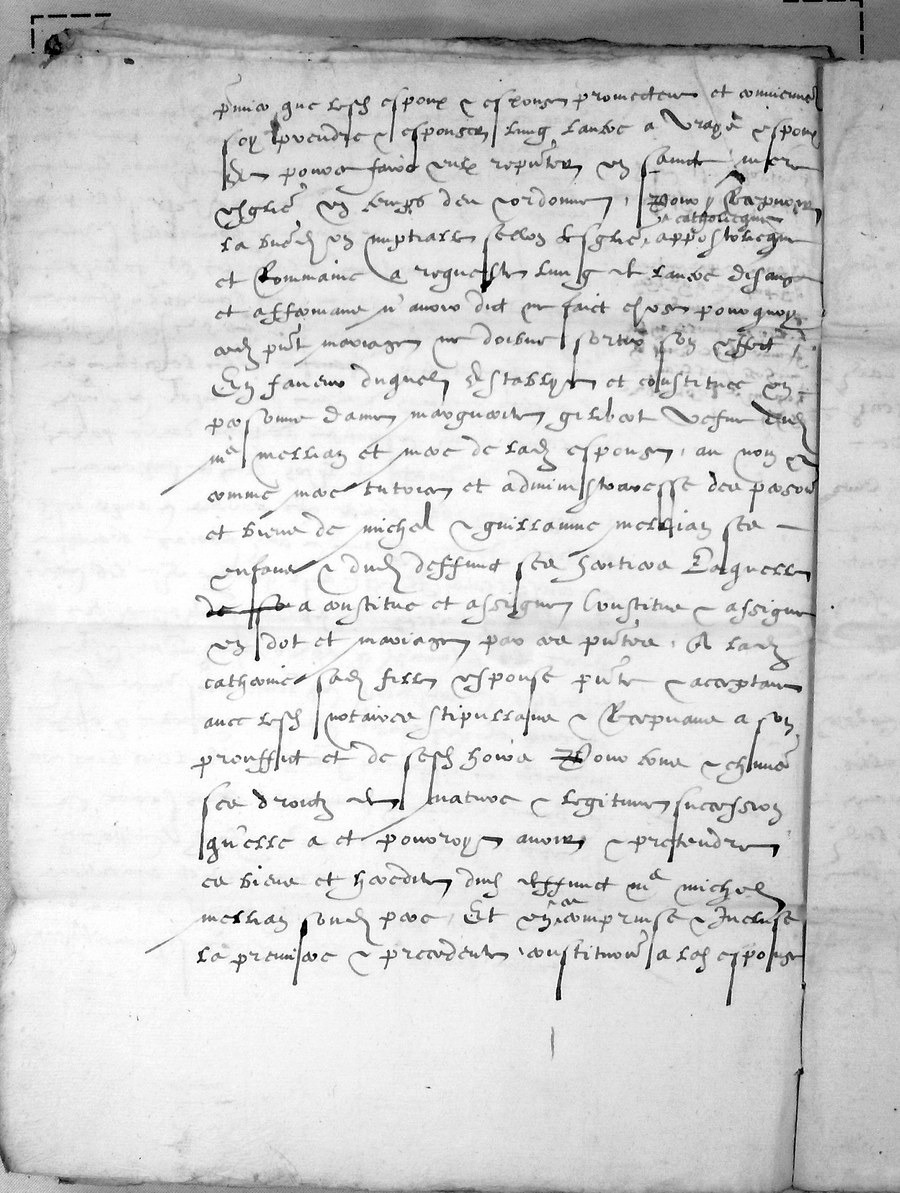 p̄mier que lesd espoux & espouse promectent et conviennent
soy prendre & espouser lung laultre a vraye espoux
et en powoir faire eulx representer en saincte mere
esglise en temps deu & ordonne, Pour y Recepvoir
catholicque
la bned̄ on nuptialle sellon lesglise appostolicque
et Rommaine a requeste lung de laultre disans
et affermans n'avoir dict ne faict chose pourquoy
ced pnt mariage ne doibve sortir son effect
En faveur duquel Establye et constituee en
personne dame marguerite gilbert vefve dud
me mellian et mere de lad espouse, au nom &
comme mere tutrice et administraresse des personnes
et biens de michel & guillaume mellian ses
enfans & dud deffunct ses heritiers Laquelle
de sa a constitue et assigne Constitue & assigne
en dot et mariage par ces pntes, A lad
catherine sad fille espouse pnte & acceptant
avec lesd notaires stipullans & Recepvans a son
prouffict et de sesd hoirs Pour tous & chnuns
ses droictz de nature & legitime succession
qu'elle a et pourroyt avoir & pretendre
es biens et heredite dud deffunct me michel
mellian sond pere, Et en ce comprinse & Incluse
la premiere & precedente constitution a lad espouse